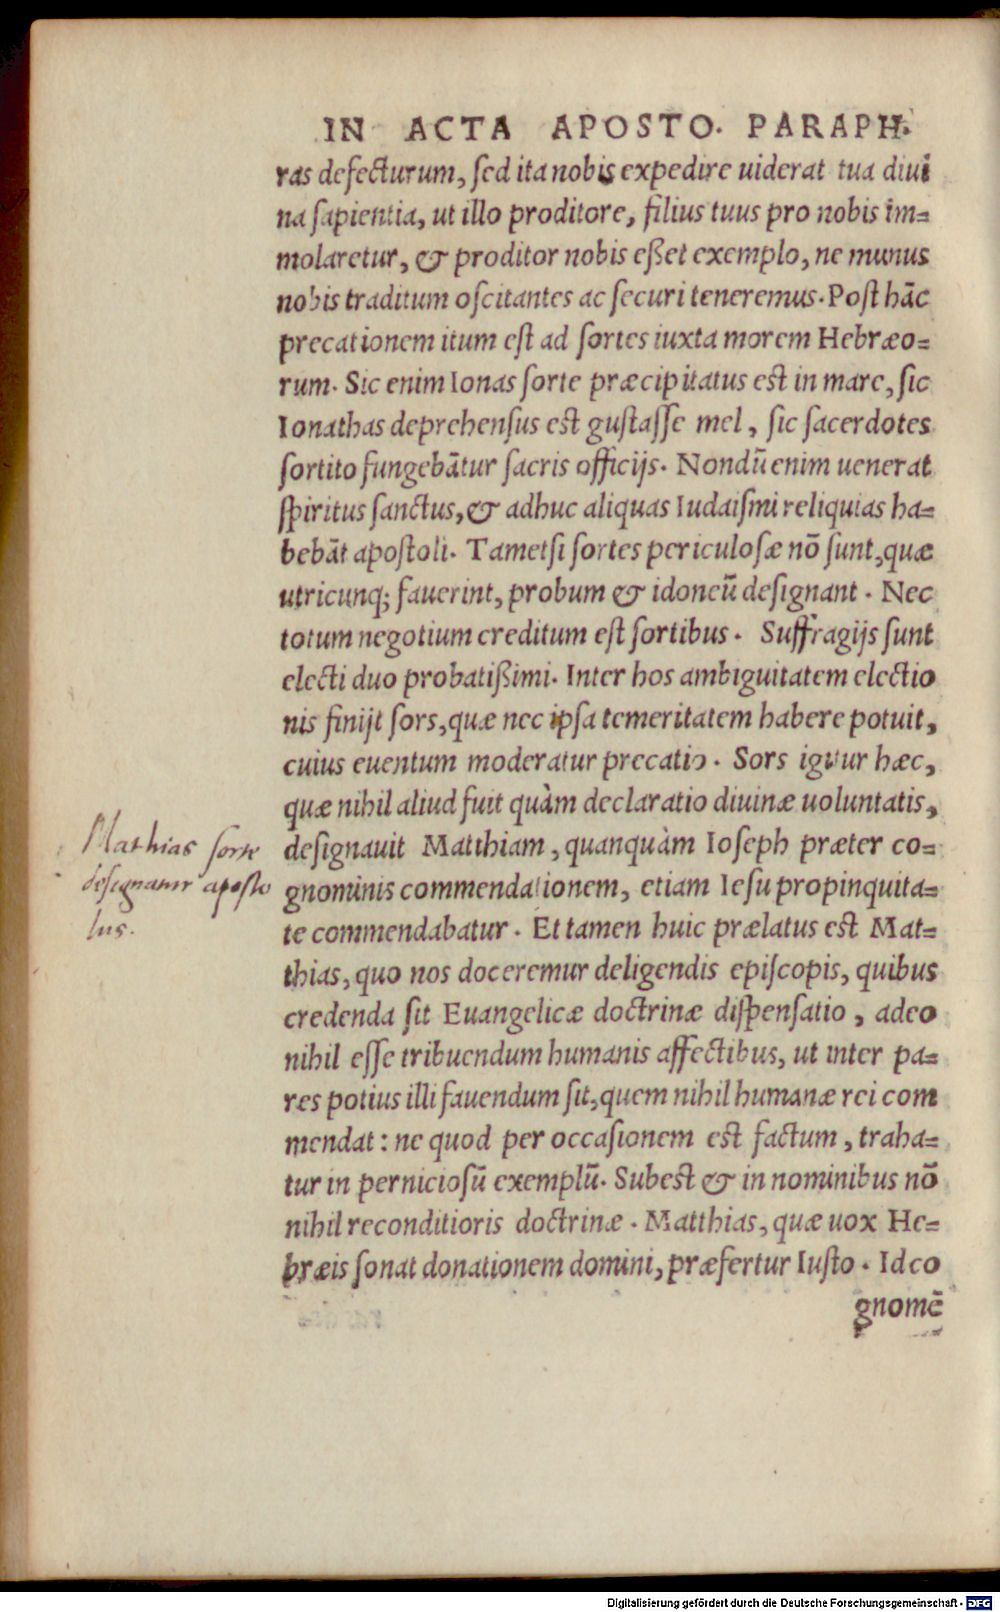 IN ACTA APOSTO. PARAPH.
ras defecturum, sed ita nobis expedire uiderat tua diui
na sapientia, ut illo proditore, filius tuus pro nobis im=
molaretur, & proditor nobis eßet exemplo, ne munus
nobis traditum oscitantes ac securi teneremus. Post hāc
precationem itum est ad sortes iuxta morem Hebræo=
rum. Sic enim Ionas sorte præcipitatus est in mare, sic
Ionathas deprehensus est gustasse mel, sic sacerdotes
sortito fungebātur sacris officijs. Nondū enim uenerat
spiritus sanctus, & adhuc aliquas Iudaismi reliquias ha=
bebāt apostoli. Tametsi sortes periculosæ nō sunt, quæ
utricunq; fauerint, probum & idoneū designant. Nec
totum negotium creditum est sortibus. Suffragijs sunt
electi duo probatißimi. Inter hos ambiguitatem electio
nis finijt sors, quæ nec ipsa temeritatem habere potuit,
cuius euentum moderatur precatio. Sors igitur hæc,
quæ nihil aliud fuit quàm declaratio diuinæ uoluntatis,
designauit Matthiam, quanquàm Ioseph præter co=
gnominis commendationem, etiam Iesu propinquita=
te commendabatur. Et tamen huic prælatus est Mat=
thias, quo nos doceremur deligendis episcopis, quibus
credenda sit Euangelicæ doctrinæ dispensatio, adeo
nihil esse tribuendum humanis affectibus, ut inter pa=
res potius illi fauendum sit, quem nihil humanæ rei com
mendat: ne quod per occasionem est factum, traha=
tur in perniciosū exemplū. Subest & in nominibus nō
nihil reconditioris doctrinæ. Matthias, quæ uox He=
bræis sonat donationem domini, præfertur Iusto. Id co
gnomē
Mathias sorte
designatur aposto
lus.
Digitalisierung gefördert durch die Deutsche Forschungsgemeinschaft - DFG